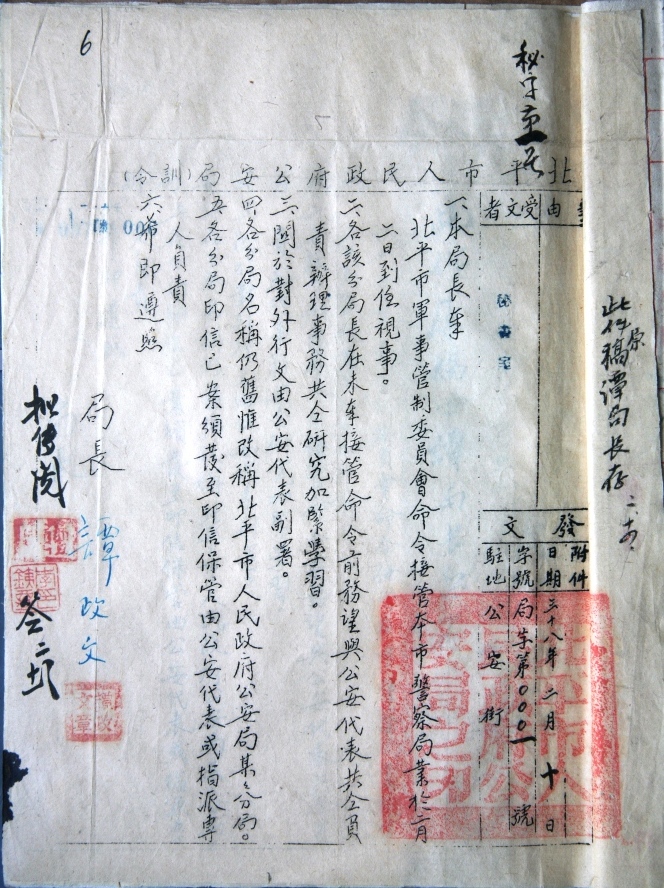 6
秘字第一號
北平市人民政府公安局(訓令)
事由
受文者
秘書室
此件原稿譚局長存
發文
附件
日期 三十八年二月十日
字號 局字第0001號
駐地 公安街
一、本局長奉
北平市軍事管制委員會命令接管本市警察局業於二月
二日到任視事。
二、各該分局長在未奉接管命令前務望與公安代表共仝負
責辦理事務共仝研究加緊學習。
三、關於對外行文由公安代表副署。
四、各分局名稱仍舊惟改稱北平市人民政府公安局某某分局。
五、各分局印信已案頒發至印信保管由公安代表或指派專
人負責
六、希即遵照
局長 譚政文